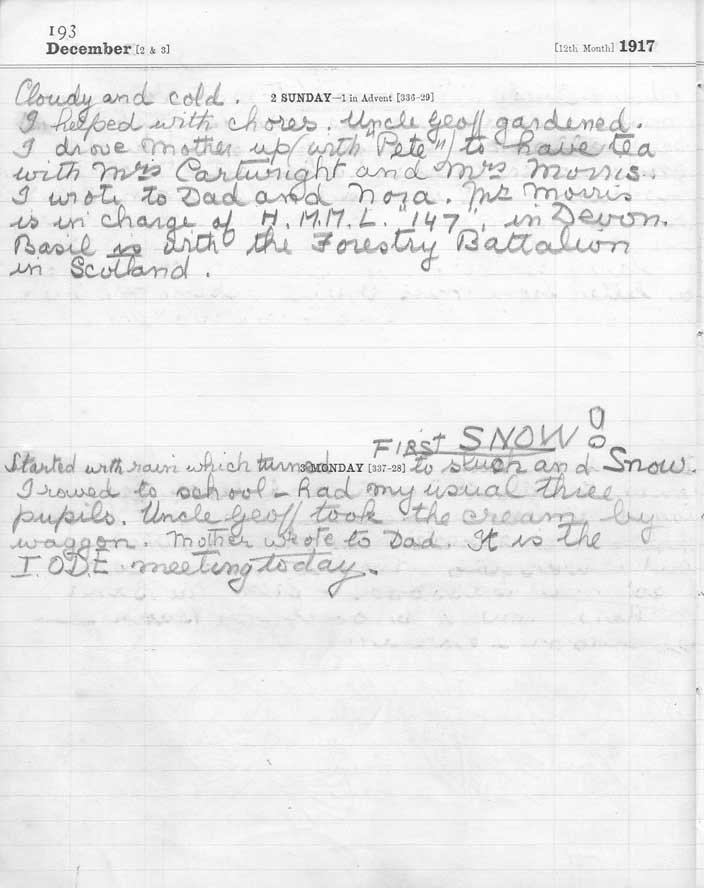 193
December [2 & 3] [12th Month] 1917
Cloudy and cold. 2 SUNDAY—1 in Advent [336-29]
I helped with chores. Uncle Geoff gardened.
I drove Mother up (with "Pete") to have tea
with Mrs Cartwright and Mrs Morris.
I wrote to Dad and Nora. Mr Morris
is in charge of H.M.M.L. "147", in Devon.
Basil is with the Forestry Battalion
in Scotland.
FIRST SNOW!
Started with rain which turned 3 MONDAY [337-28] to slush and Snow.
I rowed to school - had my usual three
pupils. Uncle Geoff took the cream by
waggon. Mother wrote to Dad. It is the
I.O.D.E. meeting today.